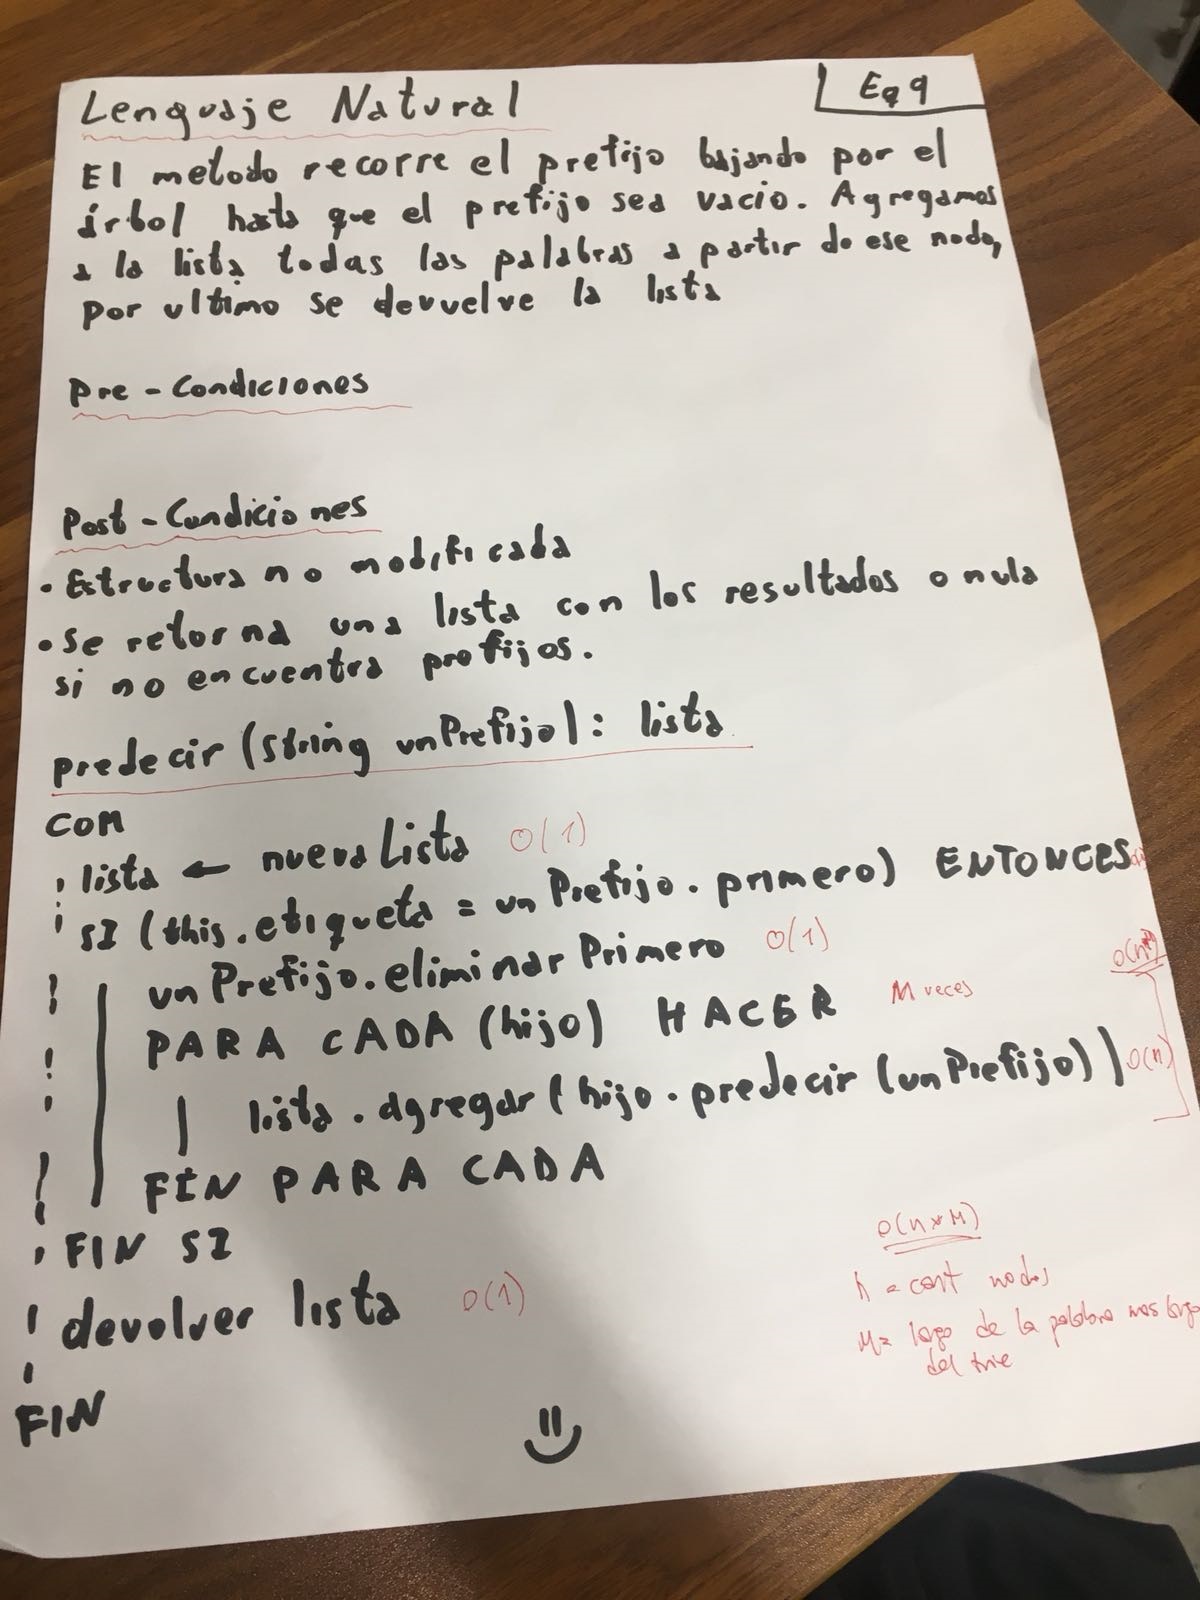 Lenguaje Natural
Eq 9
El metodo recorre el prefijo bajando por el
árbol hasta que el prefijo sea vacio. Agregamos
a la lista todas las palabras a partir de ese nodo,
por ultimo se devuelve la lista
Pre - Condiciones
Post - Condiciones
• Estructura no modificada
• Se retorna una lista con los resultados o nula
si no encuentra prefijos.
predecir (string unPrefijo) : lista
COM
lista ← nueva Lista O(1)
SI (this.etiqueta = un Prefijo. primero) ENTONCES
un Prefijo. eliminar Primero O(1)
PARA CADA (hijo) HACER M veces
lista . agregar (hijo . predecir (unPrefijo)) O(n)
FIN PARA CADA
FIN SI
devolver lista O(1)
FIN
O(n*M)
n = cant nodos
M= largo de la palabra mas larga
del trie